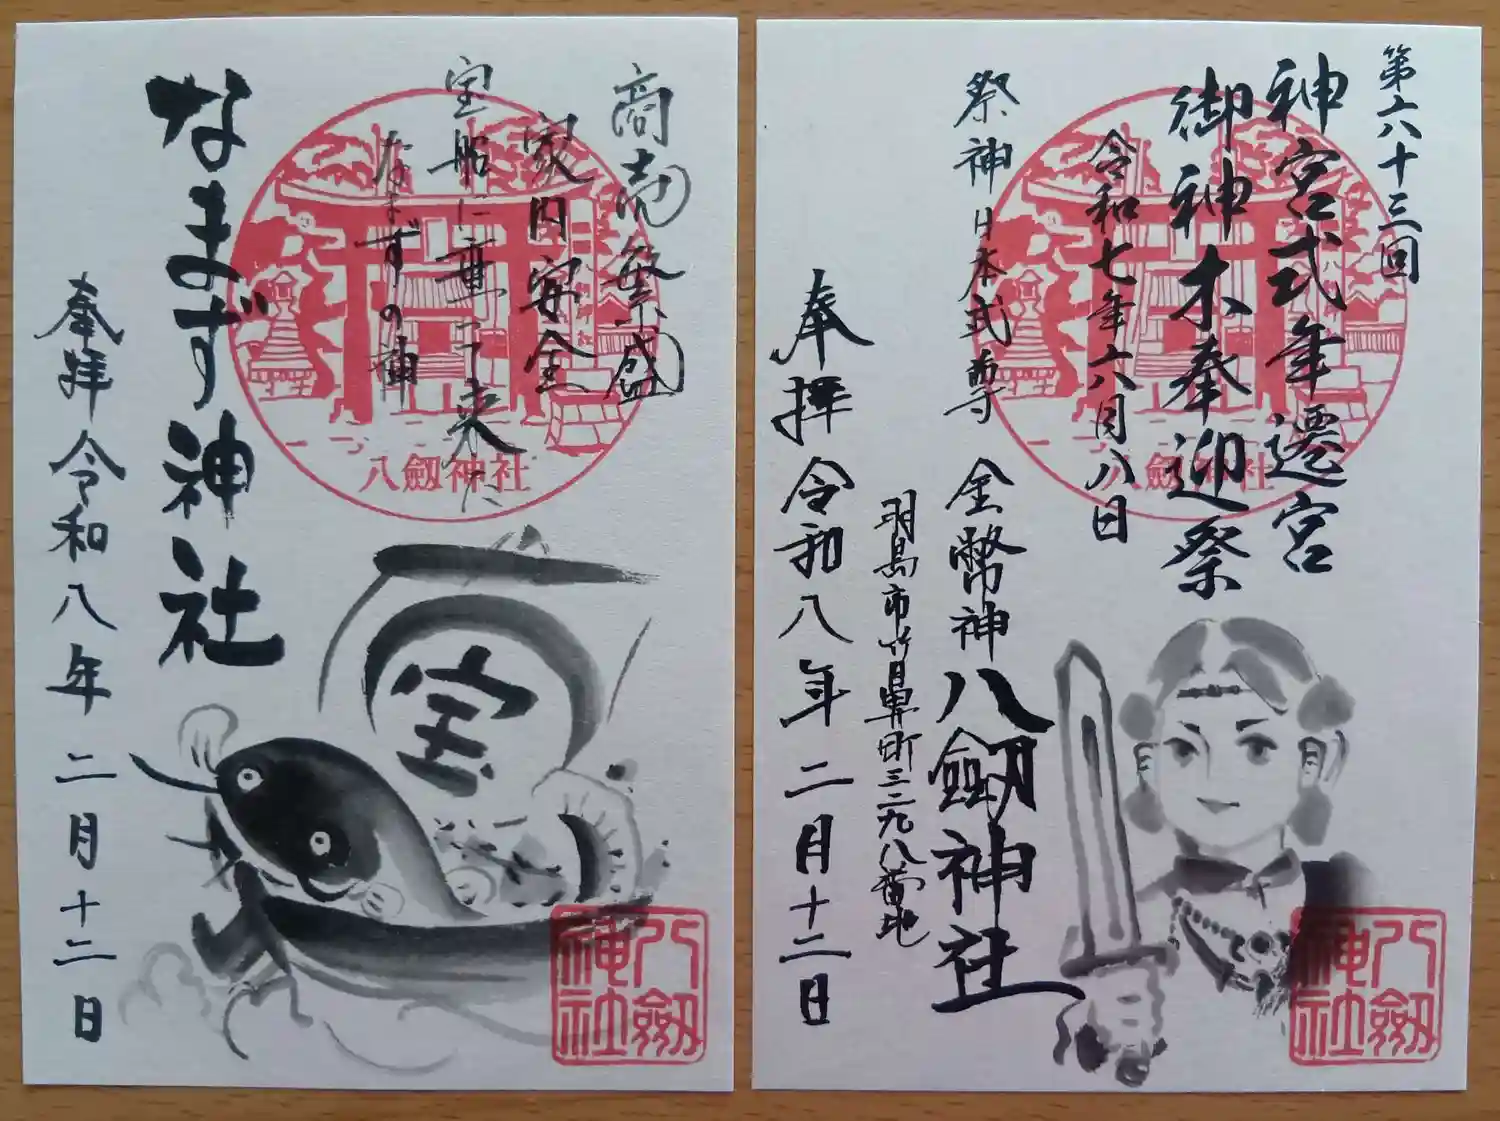 商売繁盛
家内安全
宝船に乗って来た
なまずの神
なまず神社
奉拝 令和八年二月十二日
八劔神社
宝
八劔神社
第六十三回
神宮式年遷宮
御神木奉迎祭
令和七年六月八日
祭神日本武尊
金幣神八劔神社
羽島市竹鼻町三二九八番地
奉拝 令和八年二月十二日
八劔神社
八劔神社